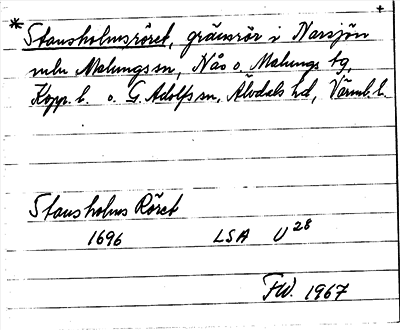 * Stausholmsröret, gränsrör i Narsjön +
mln Malungs sn, Nås o. Malungs tg,
Kopp. l. o. G. Adolfs sn, Älvdals hd, Värml. l.
Stausholms Röret
1696 LSA U 28
FW. 1967